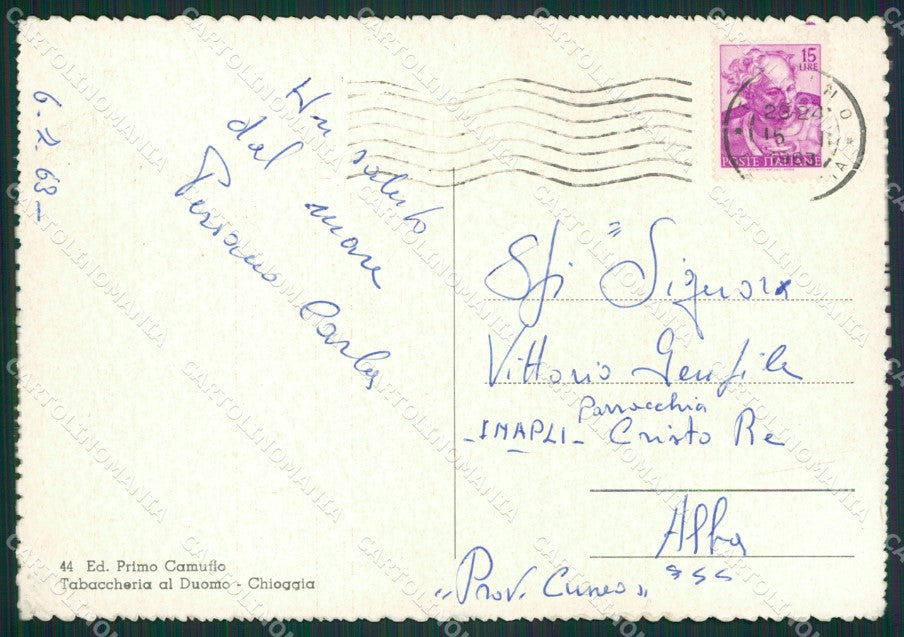 6.7.63-
Un saluto
dal mare
Persano Carlo
15
LIRE
POSTE ITALIANE
23-24
15
Sigi Signora
Vittorio Gentile
Parrocchia
-INAPLI- Cristo Re
Alba
"Prov. Cuneo"
44 Ed. Primo Camuffo
Tabaccheria al Duomo - Chioggia
CARTOLINOMANIA